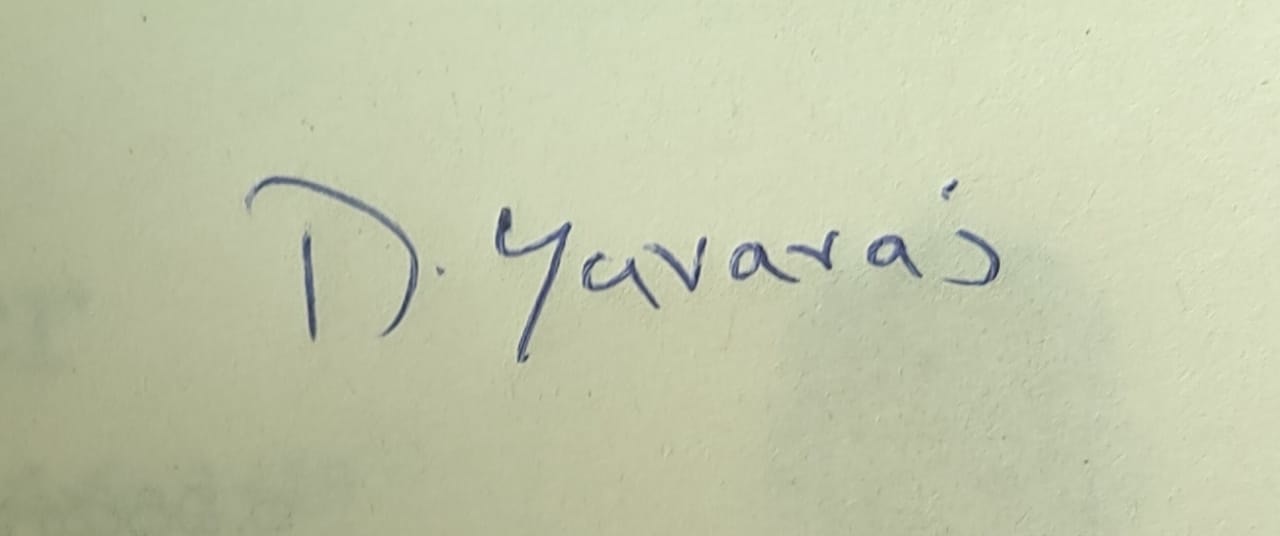 D. Yavaraj